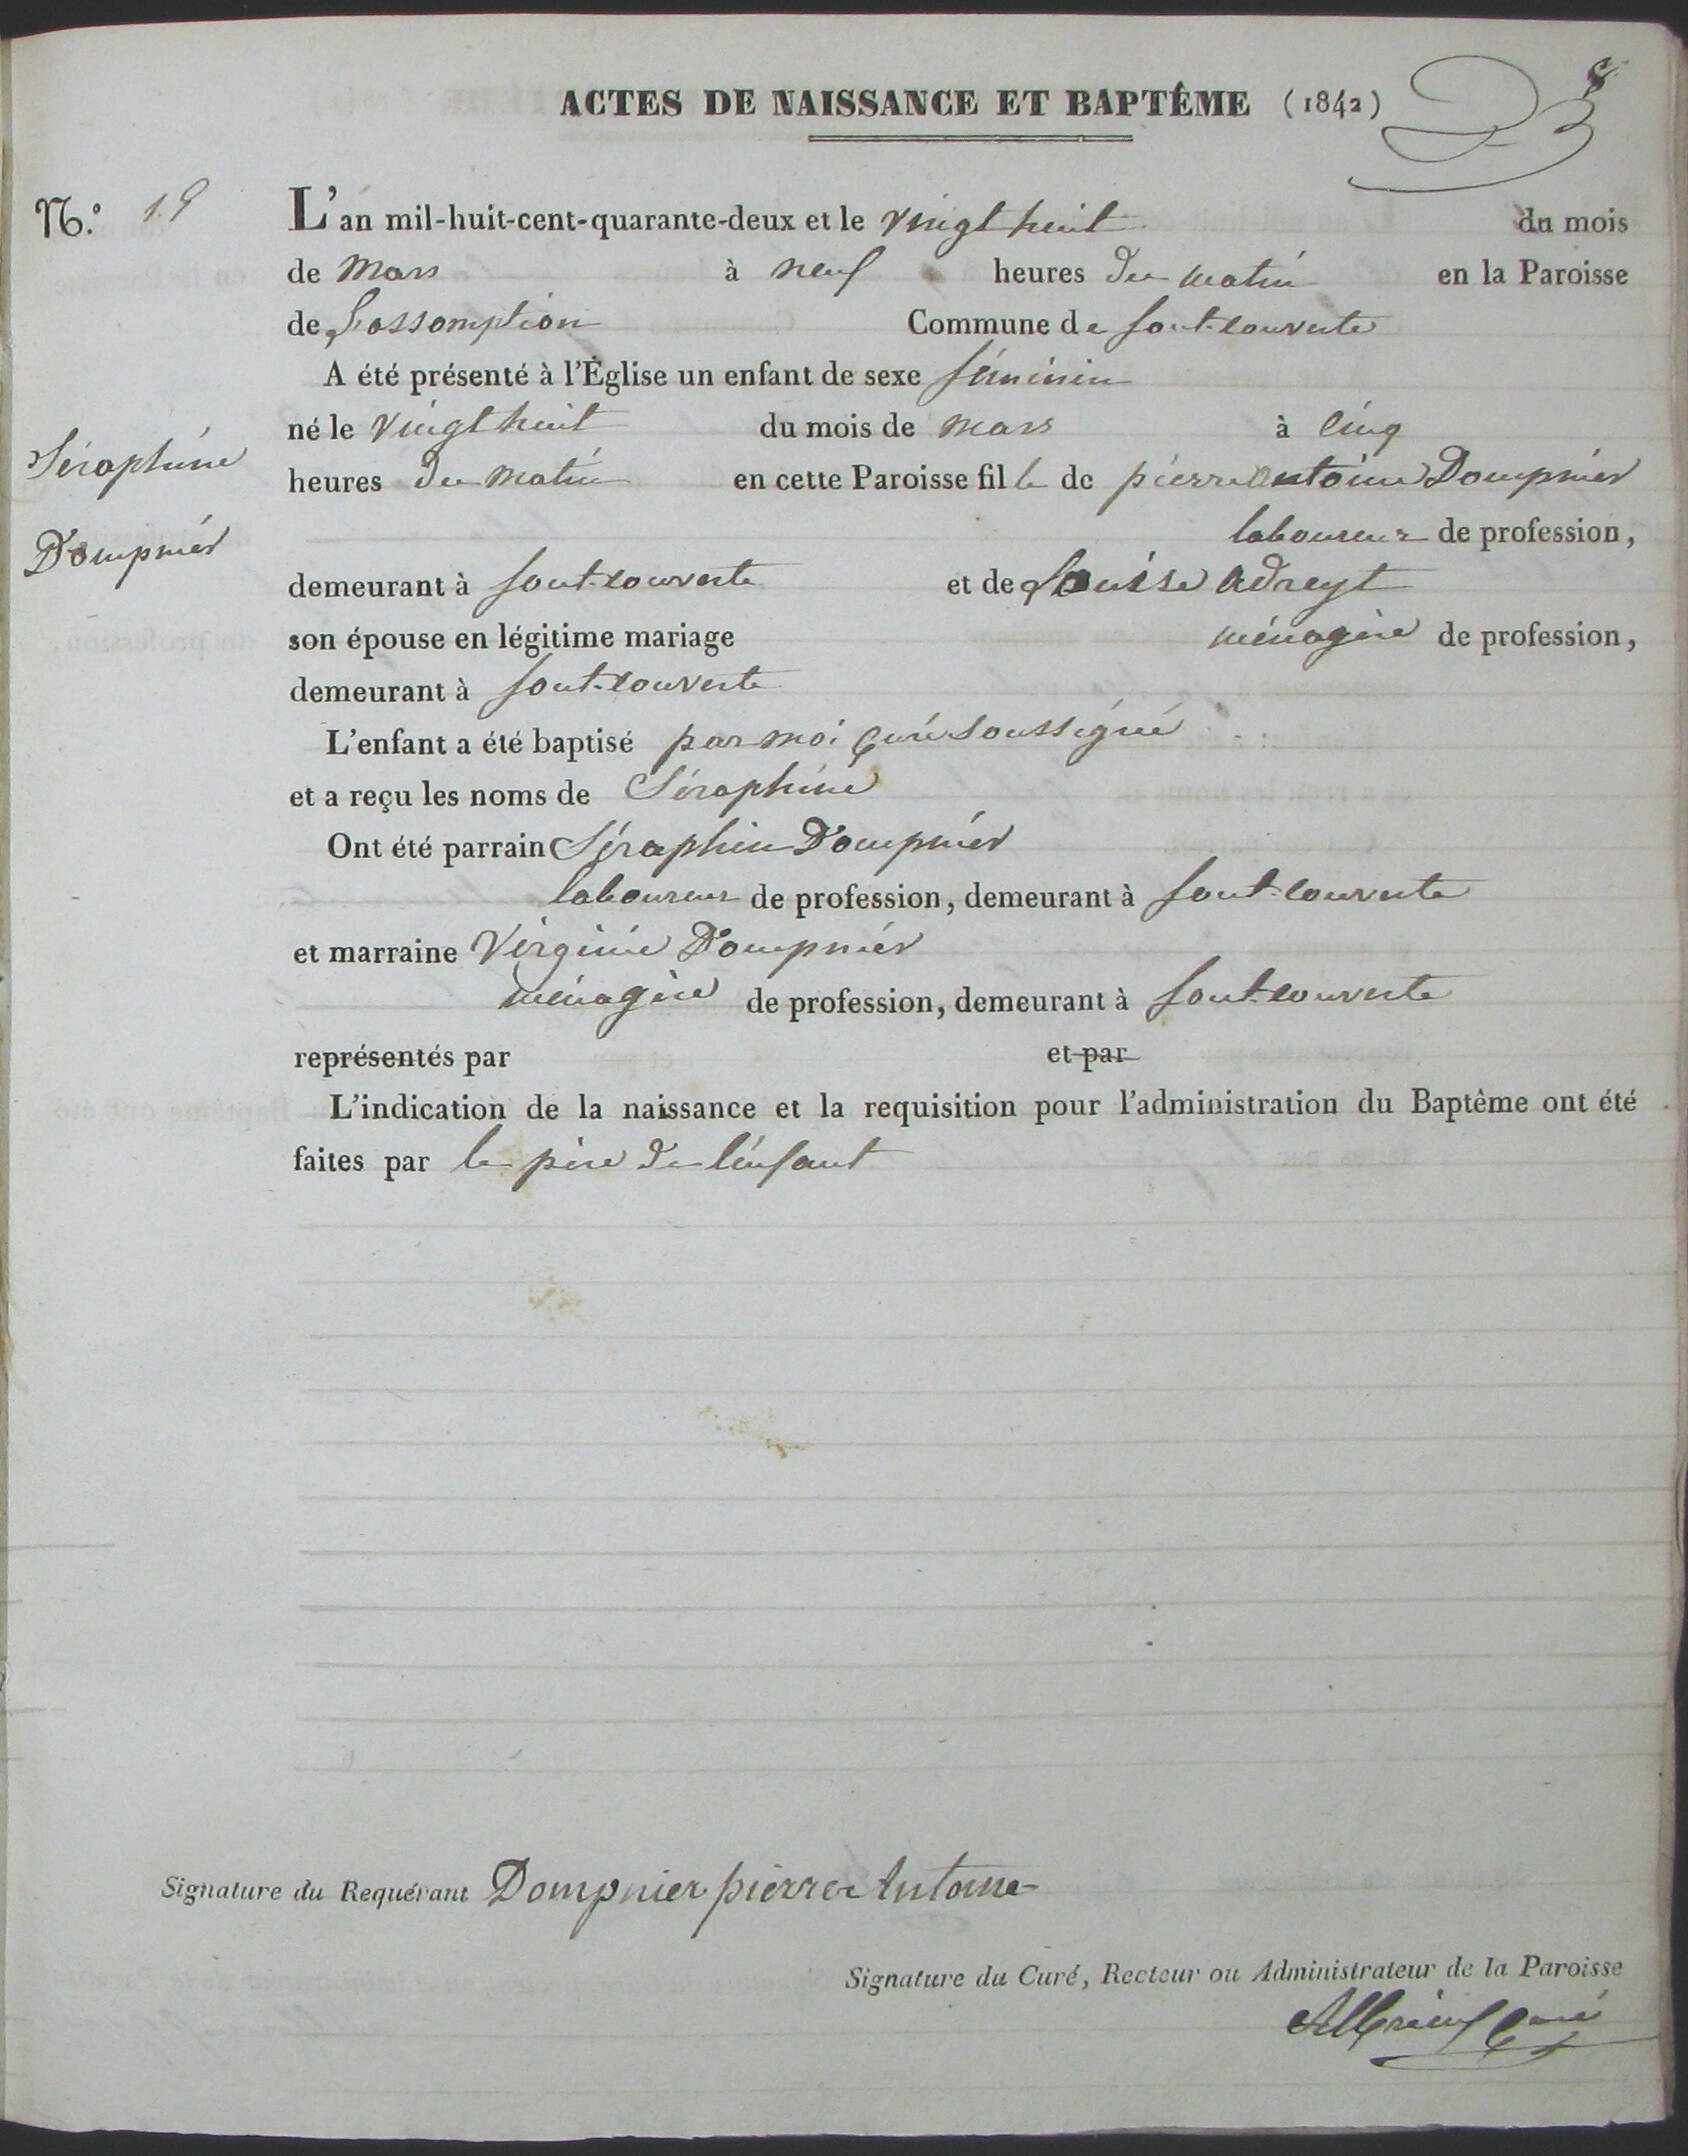 ACTES DE NAISSANCE ET BAPTÊME (1842)
8
N.º 19
L'an mil-huit-cent-quarante-deux et le vingt huit du mois
de mars à neuf heures du matin en la Paroisse
de Lassomption Commune de font-couverte
A été présenté à l'Église un enfant de sexe féminin
né le vingt huit du mois de mars à cinq
Séraphine
heures du matin en cette Paroisse fille de pierre antoine Dompnier
Dompnier
laboureur de profession,
demeurant à font-couverte et de Louise adreyt
son épouse en légitime mariage ménagère de profession,
demeurant à font-couverte
L'enfant a été baptisé par moi curé soussigné
et a reçu les noms de Séraphine
Ont été parrain Séraphin Dompnier
laboureur de profession, demeurant à font-couverte
et marraine Virginie Dompnier
ménagère de profession, demeurant à font-couverte
représentés par et par
L'indication de la naissance et la requisition pour l'administration du Baptême ont été
faites par le père de l'enfant
Signature du Requérant Dompnier pierre Antoine
Signature du Curé, Recteur ou Administrateur de la Paroisse
curé